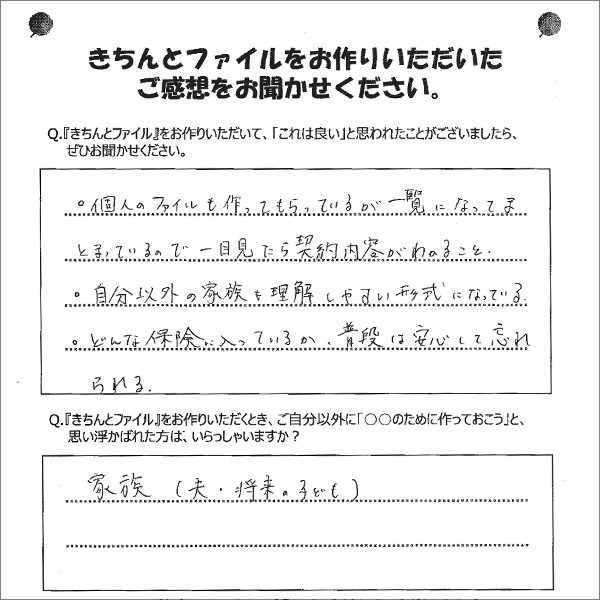 きちんとファイルをお作りいただいた
ご感想をお聞かせください。
Q.『きちんとファイル』をお作りいただいて、「これは良い」と思われたことがございましたら、
ぜひお聞かせください。
。個人のファイルも作ってもらっているが一覧になってま
とまっているので一目見たら契約内容がわかること.
。自分以外の家族も理解しやすい形式になっている.
。どんな保険に入っているか、普段は安心して忘れ
られる.
Q.『きちんとファイル』をお作りいただくとき、ご自分以外に「○○のために作っておこう」と、
思い浮かばれた方は、いらっしゃいますか？
家族（夫・将来の子ども）